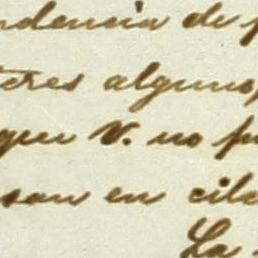 ndencia de p
teres alguno,
que V. no pu
son en cile
La